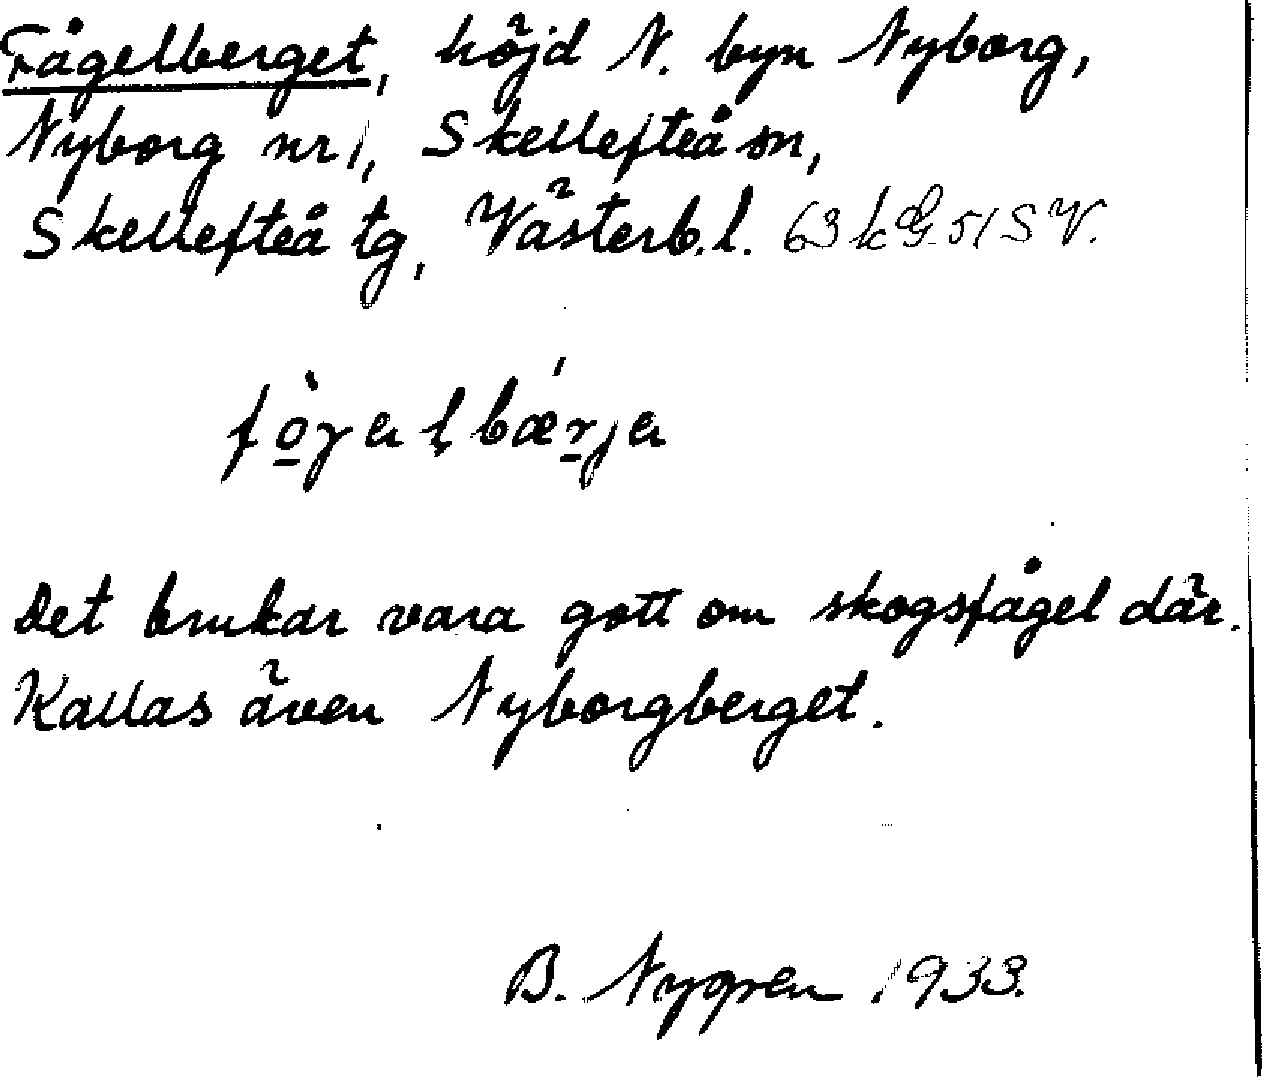 Fågelberget, höjd N. byn Nyborg,
Nyborg nr 1, Skellefteå sn,
Skellefteå tg, Västerb.l. 63 k G 51 SV.
Det brukar vara gott om skogsfågel där.
Kallas även Nyborgberget.
B. Nygren 1933.